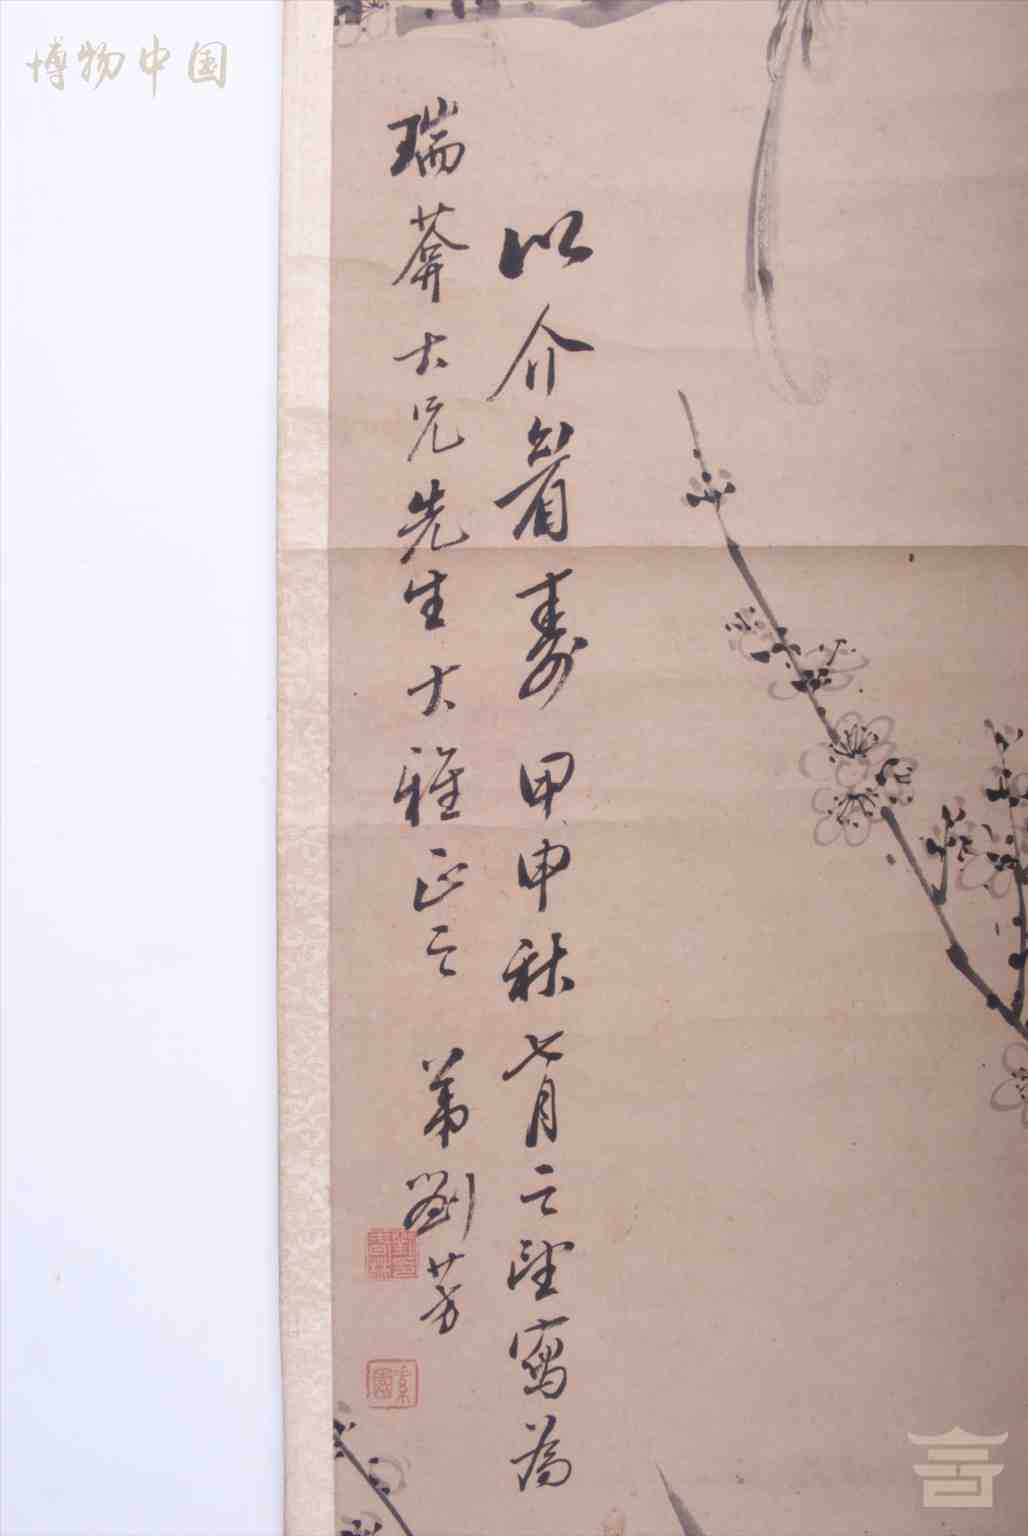 博物中国
以介眉壽甲申秋七月之望寫為
瑞莾大兄先生大雅正之 弟劉芳